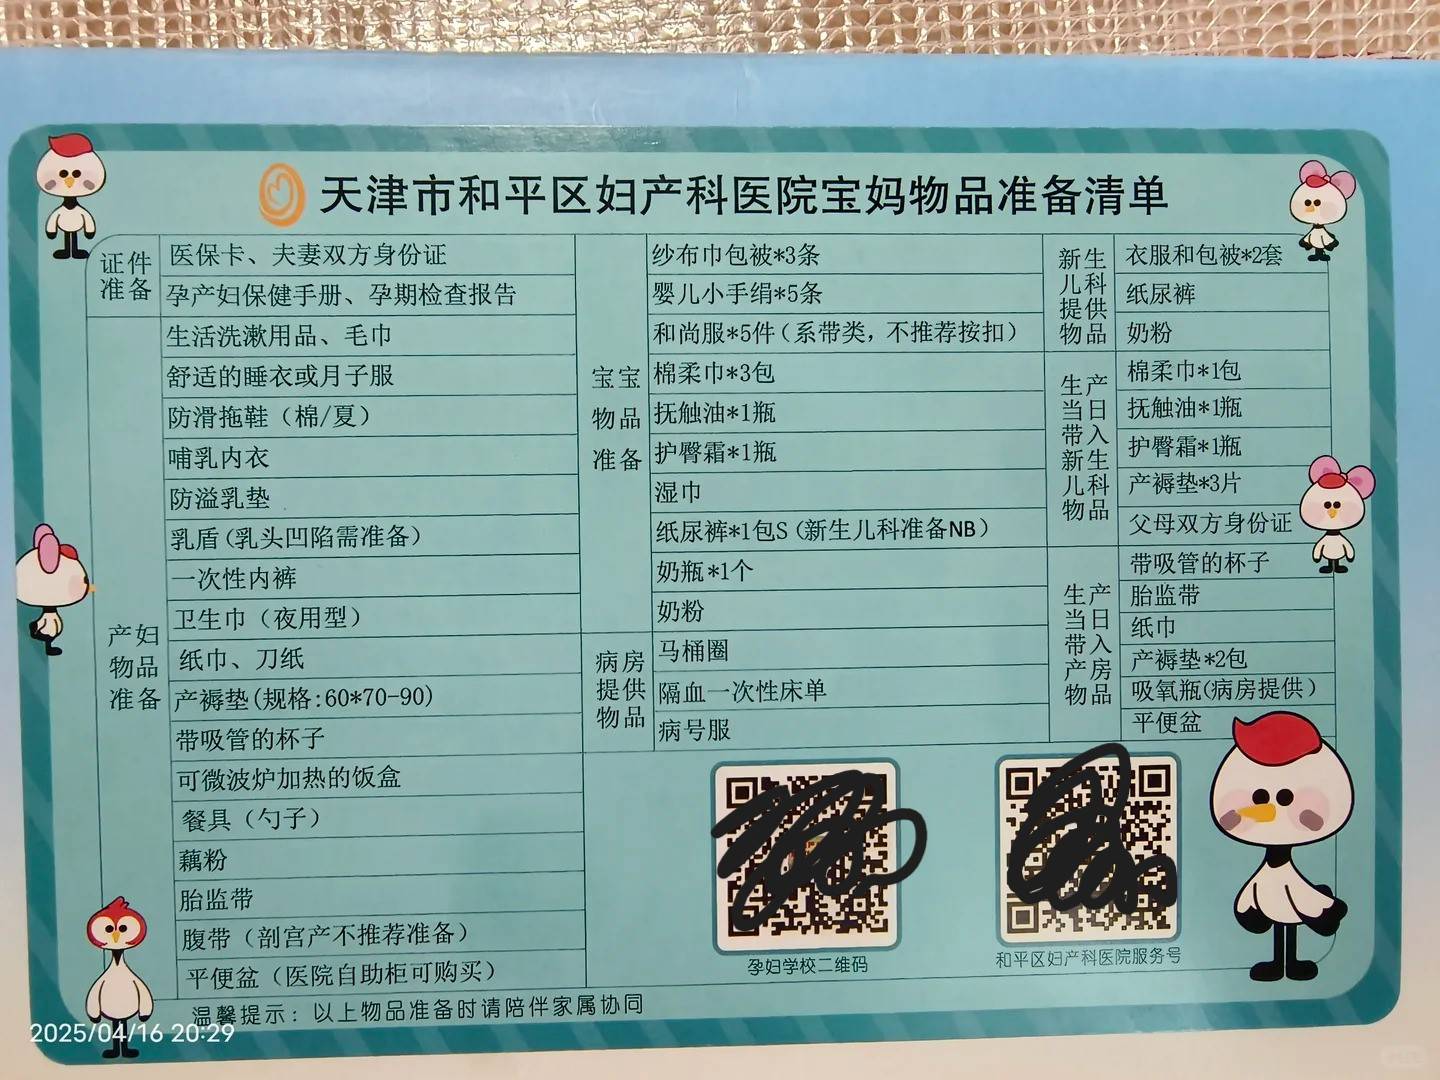 天津市和平区妇产科医院宝妈物品准备清单
证件
准备
医保卡、夫妻双方身份证
孕产妇保健手册、孕期检查报告
产妇
物品
准备
生活洗漱用品、毛巾
舒适的睡衣或月子服
防滑拖鞋（棉/夏）
哺乳内衣
防溢乳垫
乳盾(乳头凹陷需准备)
一次性内裤
卫生巾（夜用型）
纸巾、刀纸
产褥垫(规格:60*70-90)
带吸管的杯子
可微波炉加热的饭盒
餐具（勺子）
藕粉
胎监带
腹带（剖宫产不推荐准备）
平便盆（医院自助柜可购买）
宝宝
物品
准备
纱布巾包被*3条
婴儿小手绢*5条
和尚服*5件（系带类，不推荐按扣）
棉柔巾*3包
抚触油*1瓶
护臀霜*1瓶
湿巾
纸尿裤*1包S（新生儿科准备NB）
奶瓶*1个
奶粉
病房
提供
物品
马桶圈
隔血一次性床单
病号服
新生
儿科
提供
物品
衣服和包被*2套
纸尿裤
奶粉
生产
当日
带入
新生
儿科
物品
棉柔巾*1包
抚触油*1瓶
护臀霜*1瓶
产褥垫*3片
父母双方身份证
生产
当日
带入
产房
物品
带吸管的杯子
胎监带
纸巾
产褥垫*2包
吸氧瓶(病房提供）
平便盆
孕妇学校二维码
和平区妇产科医院服务号
温馨提示：以上物品准备时请陪伴家属协同
2025/04/16 20:29